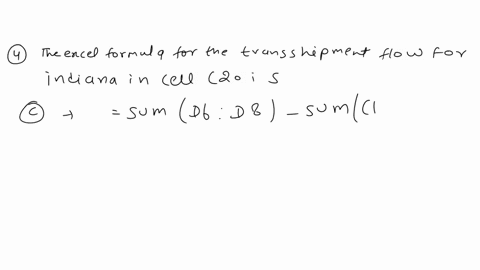 ④ The excel formula for the transshipment flow for
indiana in cell C20 is
Ⓒ → = SUM (D6 : D8) - SUM(C1